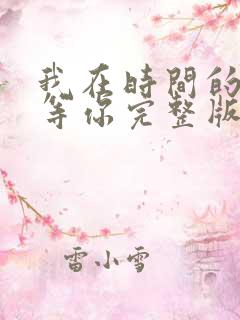 我在時間的
等你完整版
雷小雪